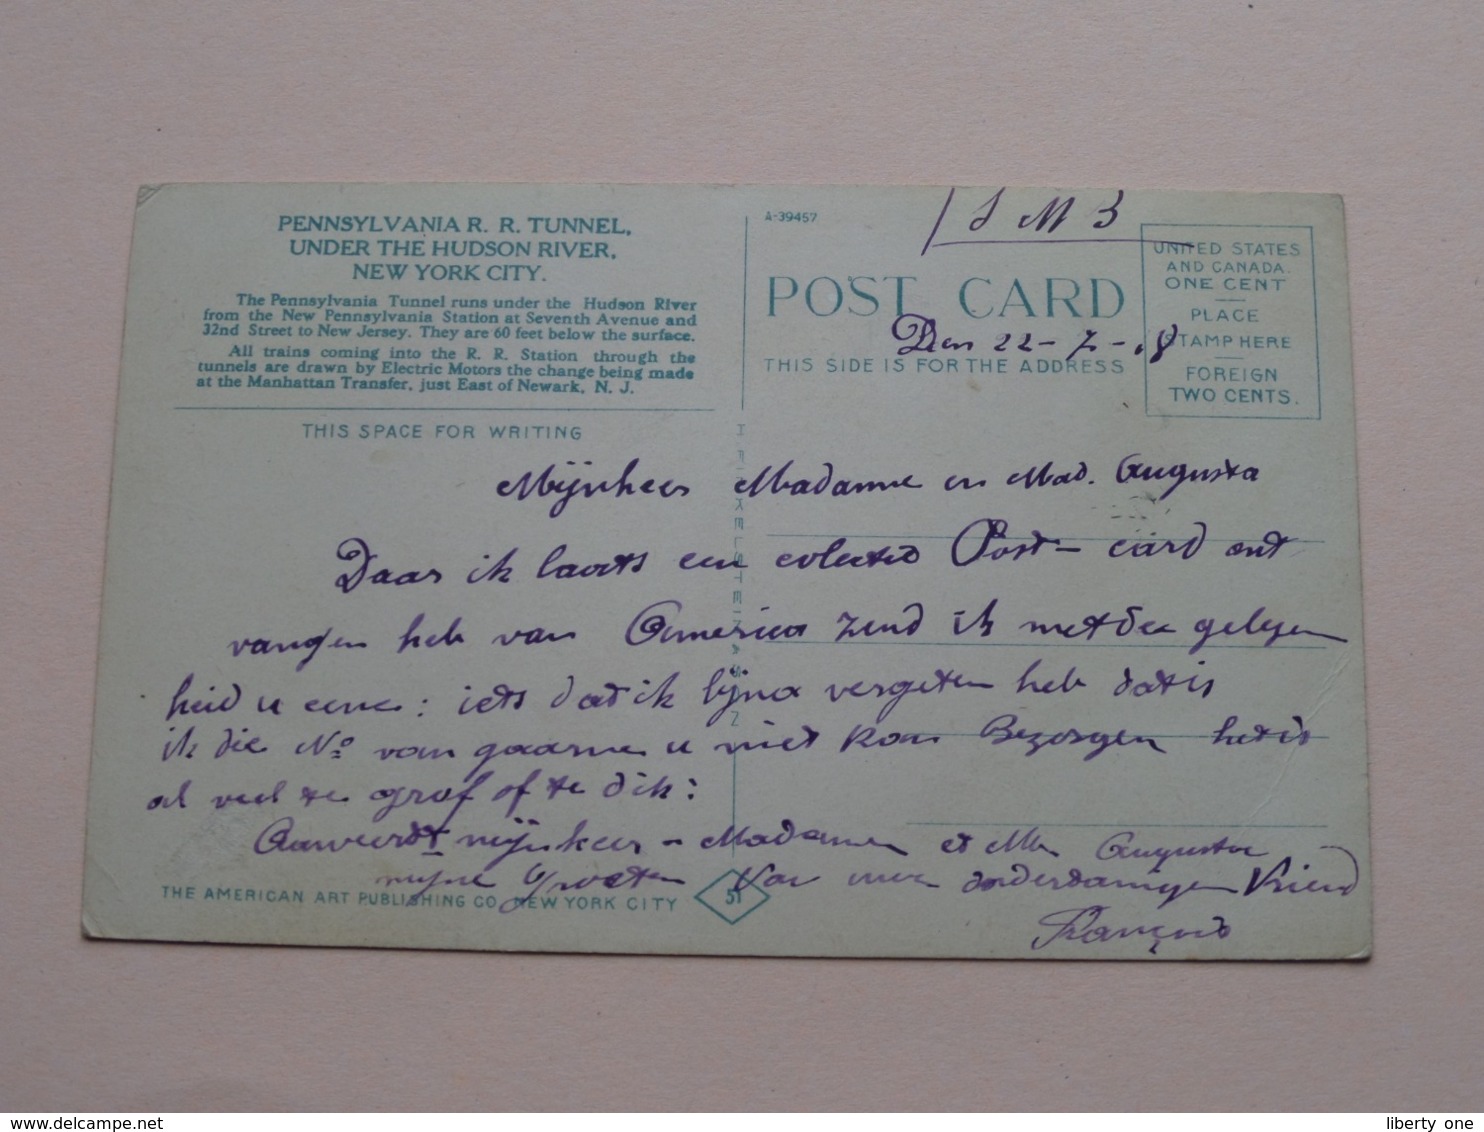 PENNSYLVANIA R. R. TUNNEL,
UNDER THE HUDSON RIVER,
NEW YORK CITY.
The Pennsylvania Tunnel runs under the Hudson River
from the New Pennsylvania Station at Seventh Avenue and
32nd Street to New Jersey. They are 60 feet below the surface.
All trains coming into the R. R. Station through the
tunnels are drawn by Electric Motors the change being made
at the Manhattan Transfer, just East of Newark, N. J.
THIS SPACE FOR WRITING
A-39457
S M B
POST CARD
Den 22-7-18
THIS SIDE IS FOR THE ADDRESS
UNITED STATES
AND CANADA.
ONE CENT
PLACE
STAMP HERE
FOREIGN
TWO CENTS.
Mijnheer Madamme en Mad. Augusta
Daar ik laatst een Post-card ont
vangen heb van America zend ik met de gelegen
heid u eene: iets dat ik bijna vergeten heb dat is
ik die No van gaarne u niet kan Bezorgen het is
al veel te grof of te dik:
Aanveerdt mijnheer - Madamen et Me Augusta
mijne Groeten Van uwen onderdanigen Vriend
François
THE AMERICAN ART PUBLISHING CO. NEW YORK CITY
51
liberty one
delcampe.net